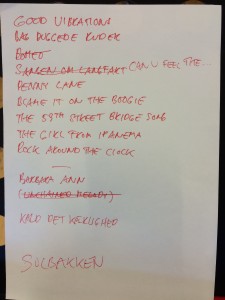 GOOD VIBRATIONS
BAG DUGGEDE RUDER
BOHEO
SANGEN OM LARSEN CAN U FEEL THE...
PENNY LANE
BLAME IT ON THE BOOGIE
THE 59TH STREET BRIDGE SONG
THE GIRL FROM IPANEMA
ROCK AROUND THE CLOCK
BARBARA ANN
(UNCHAINED MELODY)
KALD DET KÆRLIGHED
SOLBAKKEN